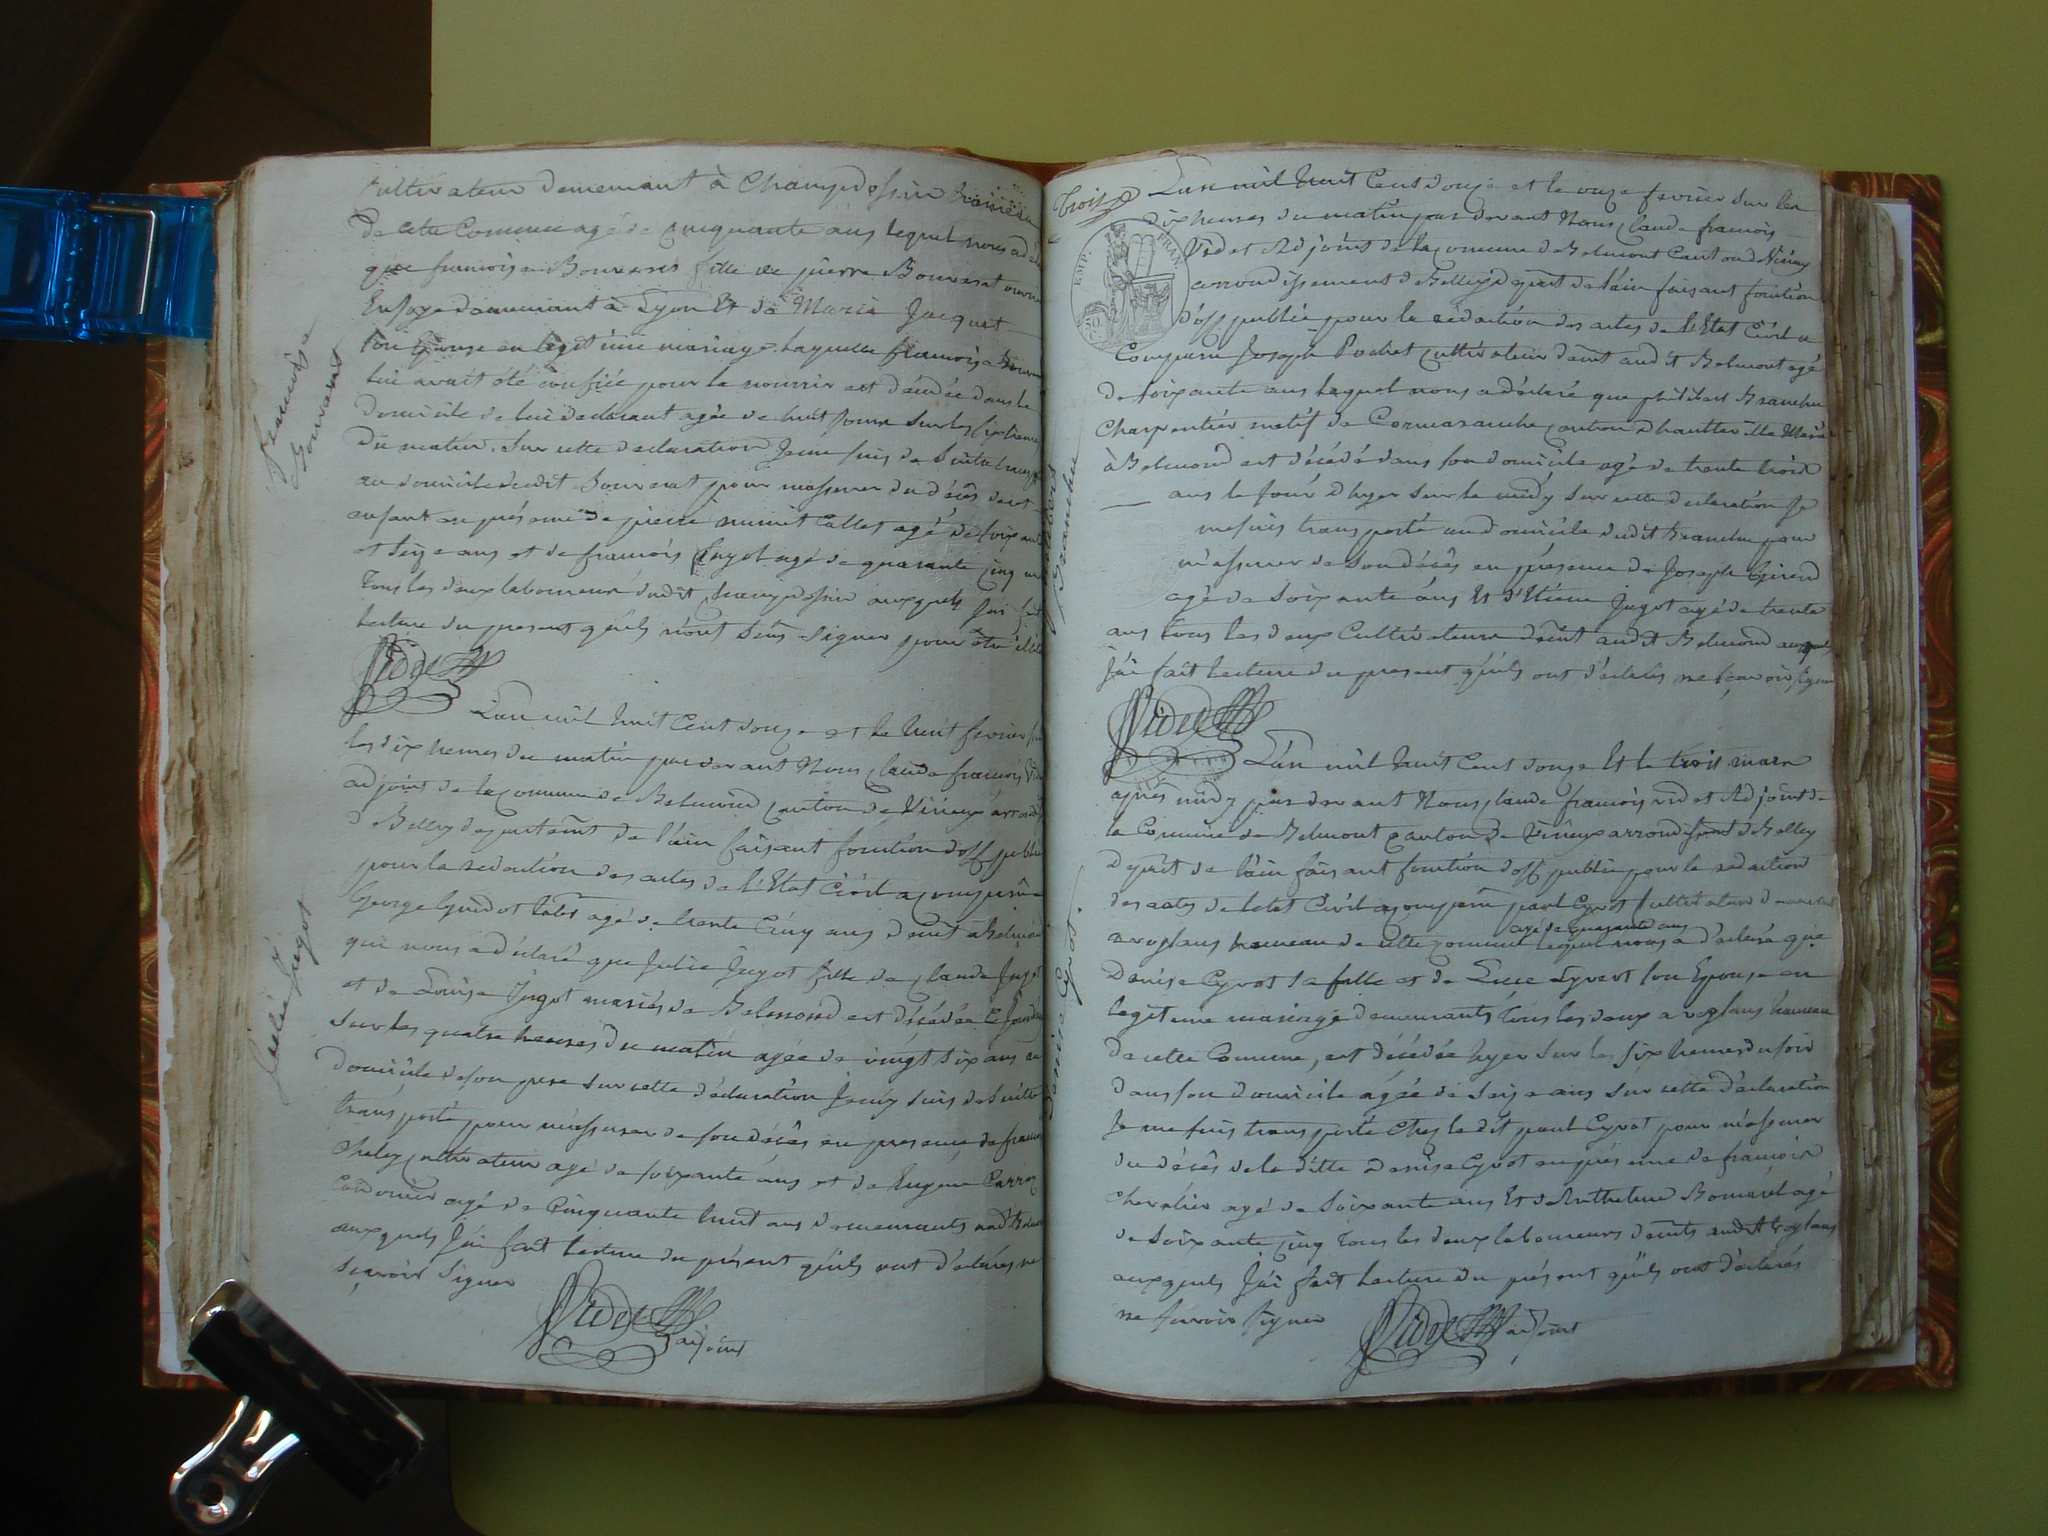 cultivateur demeurant à Champdossin hameau
de cette Commune agé de cinquante ans lequel nous a
que françoise Bouverat fille de pierre Bouverat ouvrier
En soye demeurant à Lyon Et de Marie Jacquet
son Epouse en légitime mariage. Laquelle françoise
lui avait été confiée pour la nourrir est décédée dans le
domicile de lui declarant agée de huit Jours sur les
du matin. Sur cette declaration Je me suis de suitte
au domicile dudit Bouverat pour m'assurer du décès
enfant en présence de pierre agé de soixante
et seize ans et de françois agé de quarante cinq ans
Tous les deux laboureurs dudit Champdossin auxquels J'ai fait
lecture du present qu'ils n'ont signer pour être
Videt
françoise
Bouverat
L'an mil huit Cent douze et le huit fevrier
les dix heures du matin par devant Nous Claude françois
adjoint de la Commune de Belmond canton de Virieux
de Belley departemt de l'ain faisant fonction d'off public
pour la redaction des actes de l'Etat Civil a comparu
George agé de trente Cinq ans demt à
qui nous a déclaré que Julie Jugot fille de Claude Jugot
et de Louise Jugot mariés de Belmond est décédée Ce
sur les quatre heures du matin agée de vingt six ans au
domicile de son pere sur cette déclaration Je my suis de suitte
transporté pour m'assurer de son décès en presence de
cultivateur agé de soixante ans et de Eugene
Cordonier agé de Cinquante huit ans demeurants
auxquels J'ai fait lecture du présent qu'ils ont déclarés ne
scavoir signer
Videt
adjoint
Julie Jugot
Trois
L'an mil huit Cent douze et le onze fevrier sur les
dix heures du matin par devant Nous Claude françois
Videt Adjoint de la Commune de Belmont Canton de Virieux
EMP. FRAN.
arrondissement de Belley dpmt de l'ain faisant fonction
d'off public pour la rédaction des actes de l'Etat Civil a
Comparu Joseph Pochet cultivateur demt audit Belmont agé
de soixante ans lequel nous a déclaré que philibert Branche
Charpentier natif de Cormaranche canton d'hautteville
à Belmond est décédé dans son domicile agé de trente trois
ans le Jour d'hyer sur le midy sur cette declaration Je
me suis transporté au domicile dudit Branche pour
m'assurer de son décès en présence de Joseph
agé de soixante ans Et d'Etiene Jugot agé de trente
ans tous les deux Cultivateurs demt audit Belmond auxquels
J'ai fait lecture du present qu'ils ont déclarés ne scavoir signer
Videt
philibert
Branche
L'an mil huit Cent douze Et le trois mars
après midy par devant Nous Claude françois videt Adjoint de
la Commune de Belmont canton de Virieux arrondissment de Belley
Dpmt de l'ain faisant fonction d'off public pour la redaction
des actes de letat Civil a comparu paul Cyvot cultivateur demeurant
agé de quarante ans
a hameau de cette commune lequel nous a déclaré que
Denise Cyvot sa fille et de Luce Lyvet son Epouse en
legitime mariage demeurants Tous les deux a hameau
de cette Commune, est décédée hyer sur les six heures du soir
dans son domicile agée de seize ans sur cette déclaration
Je me suis transporté Chez le dit paul Cyvot pour m'assurer
du décès de la ditte Denise Cyvot en présence de françois
Chevalier agé de Soixante ans Et de Anthelme agé
de soixante cinq Tous les deux laboureurs demts audit
auxquels J'ai fait lecture du présent qu'ils ont déclarés
ne scavoir signer
Videt adjoint
Denise Cyvot.